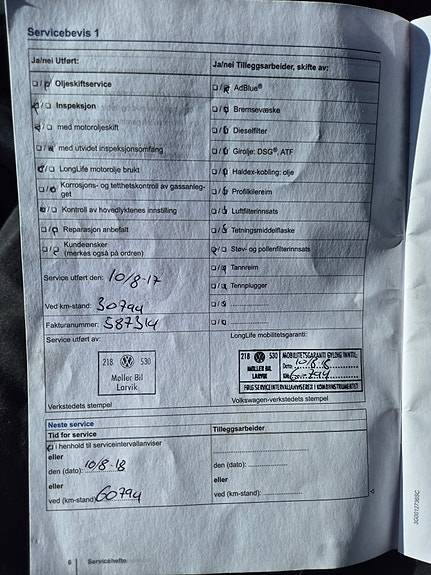 Servicebevis 1
Ja/nei Utført:
Oljeskiftservice
Inspeksjon
med motoroljeskift
med utvidet inspeksjonsomfang
LongLife motorolje brukt
Korrosjons- og tetthetskontroll av gassanleg-
get
Kontroll av hovedlyktenes innstilling
Reparasjon anbefalt
Kundeønsker
(merkes også på ordren)
Service utført den: 10/8-17
Ved km-stand: 30794
Fakturanummer: 587314
Ja/nei Tilleggsarbeider, skifte av:
AdBlue®
Bremsevæske
Dieselfilter
Girolje: DSG®, ATF
Haldex-kobling: olje
Profilkilereim
Luftfilterinnsats
Tetningsmiddelflaske
Støv- og pollenfilterinnsats
Tannreim
Tennplugger
Service utført av:
218 530
Møller Bil
Larvik
Verkstedets stempel
LongLife mobilitetsgaranti:
218 530
MØLLER BIL
LARVIK
MOBILITETSGARANTI GYLDIG INNTIL:
Dato: 10/8-18
KM: 60794
FØLG SERVICEINTERVALLANVISEREN I KOMBIINSTRUMENTET
Volkswagen-verkstedets stempel
Neste service
Tid for service
i henhold til serviceintervallanviser
eller
den (dato): 10/8-18
eller
ved (km-stand): 60794
Tilleggsarbeider
den (dato):
eller
ved (km-stand):
6 Servicehefte
3G0012730SC